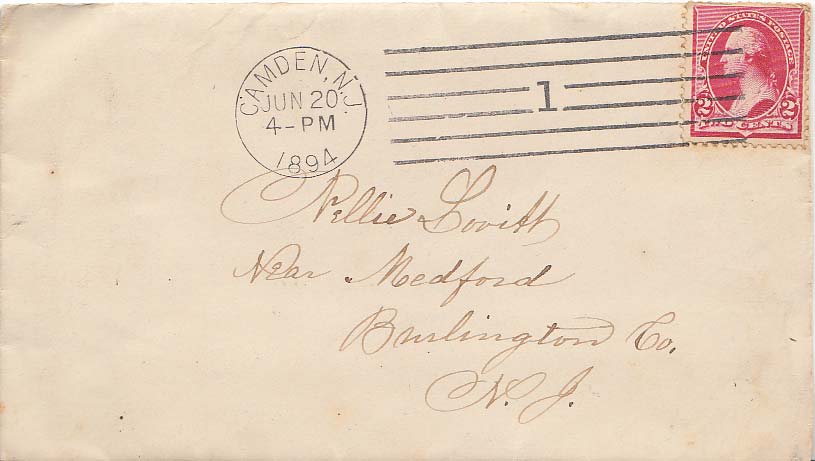 CAMDEN, N.J.
JUN 20
4-PM
1894
1
UNITED STATES POSTAGE
2 2
TWO CENTS
Nellie Lovitt
Near Medford
Burlington Co.
N. J.